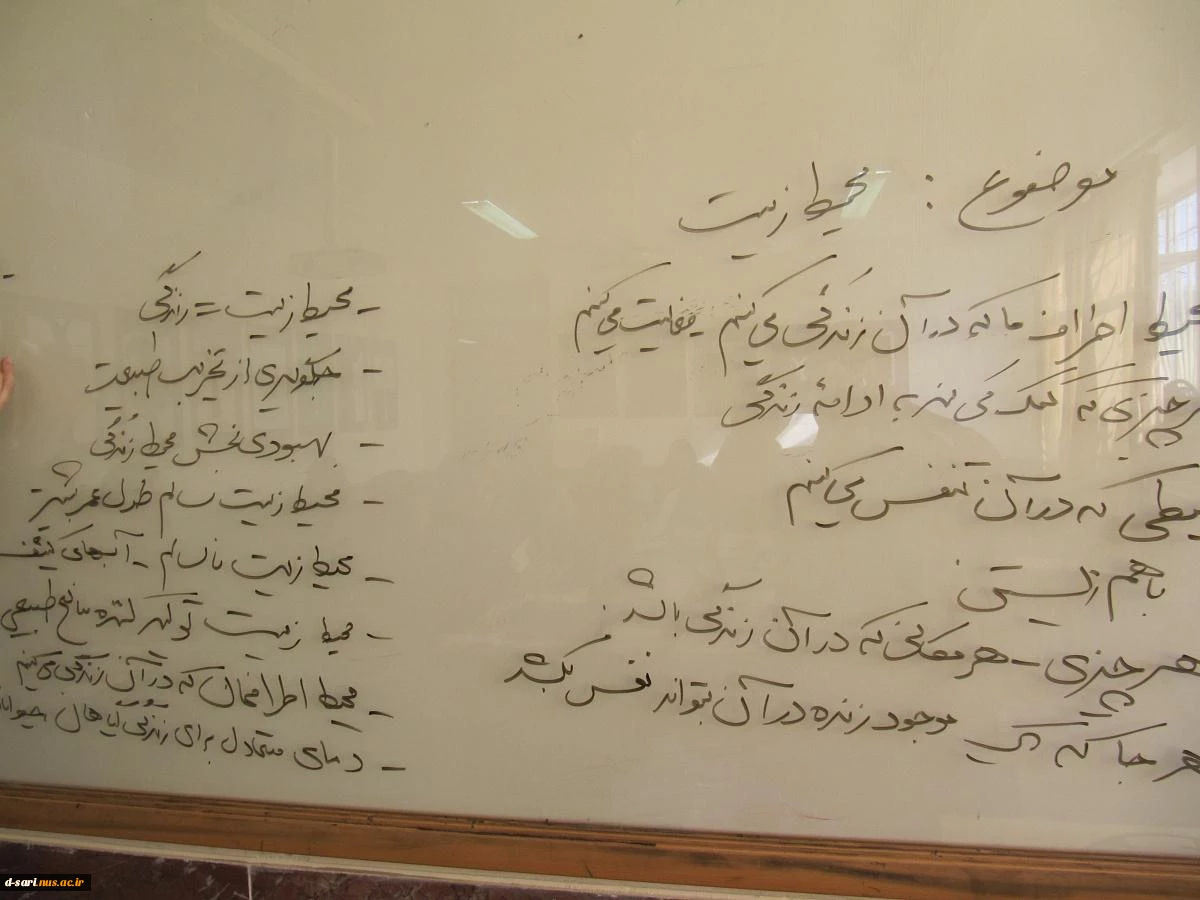 موضوع : محیط زیست
محیط اطراف ما که در آن زندگی می کنیم - فعالیت می کنیم
چیزی که کمک می کند به ادامه زندگی
که در آن تنفس می کنیم
با هم زیستی
هر چیزی - هر مکانی که در آن زندگی باشد.
هر جا که یک موجود زنده در آن بتواند نفس بکشد
- محیط زیست = زندگی
- جلوگیری از تخریب طبیعت
- بهبودی بخش محیط زندگی
- محیط زیست سالم طول عمر بیشتر
- محیط زیست ناسالم - آبهای کثیف
- محیط زیست تولید کننده منابع طبیعی
- محیط اطرافمان که در آن زندگی می کنیم
- دمای متعادل برای زندگی گیاهان
d-sari.nus.ac.ir